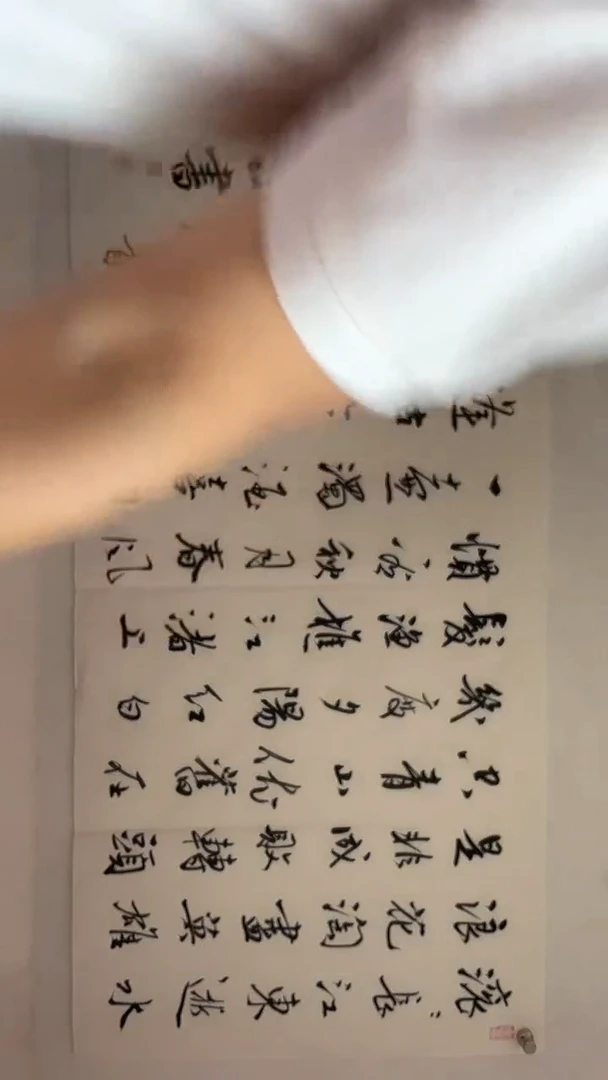 滚〻長江東逝水
浪花淘盡英雄
是非成敗轉頭
空青山依舊在
幾度夕陽紅白
髮漁樵江渚上
慣看秋月春風
一壺濁酒喜
書